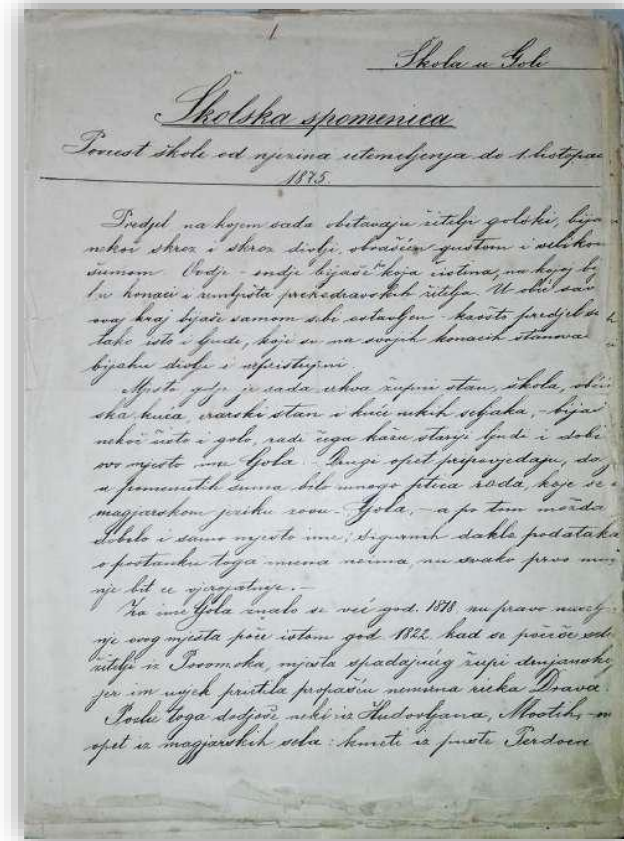 1
Škola u Goli
Školska spomenica
Poviest škole od njezina utemeljenja do 1 listopada
1875.
Predjel na kojem sada obitavaju žitelji golski, bija
nekoć skroz i skroz divlji, obrašćen gustom i velikom
šumom. Ovdje - ondje bijaše koja čistina, na kojoj bi
konaci i zemljišta prekodravskih žitelja. U obće sav
ovaj kraj bijaše samom sebi ostavljen kavšto predjel
tako isto i ljude, koji su na svojih konacih stanova
bijahu divlji i nepristupni
Mjesto gdje je sada crkva župni stan, škola, obći
ska kuća, erarski stan i kuće nekih seljaka, - bijaš
nekoć čisto i golo, radi čega kažu stariji ljudi i dobi
ovo mjesto ime Gola. - Drugi opet pripovjedaju, da
u pomenutih šuma bilo mnogo ptica roda, koje se
magjarskom jeziku zovu - Gola, - a po tom možda
dobilo i samo mjesto ime; sigurnih dakle podataka
o postanku toga imena neima, nu svako prvo mni
nje bit će vjerojatnije. -
Za ime Gola znalo se već god. 1818, nu pravo naselj
nje ovog mjesta poče istom god. 1822 kad se počeše
žitelji iz mjesta spadajućeg župi drnjanskoj
jer im uvjek prietila propašću nemirna rieka Drava.
Posle toga dodjoše neki iz Hudovljana,
opet iz magjarskih sela: kmeti iz puste